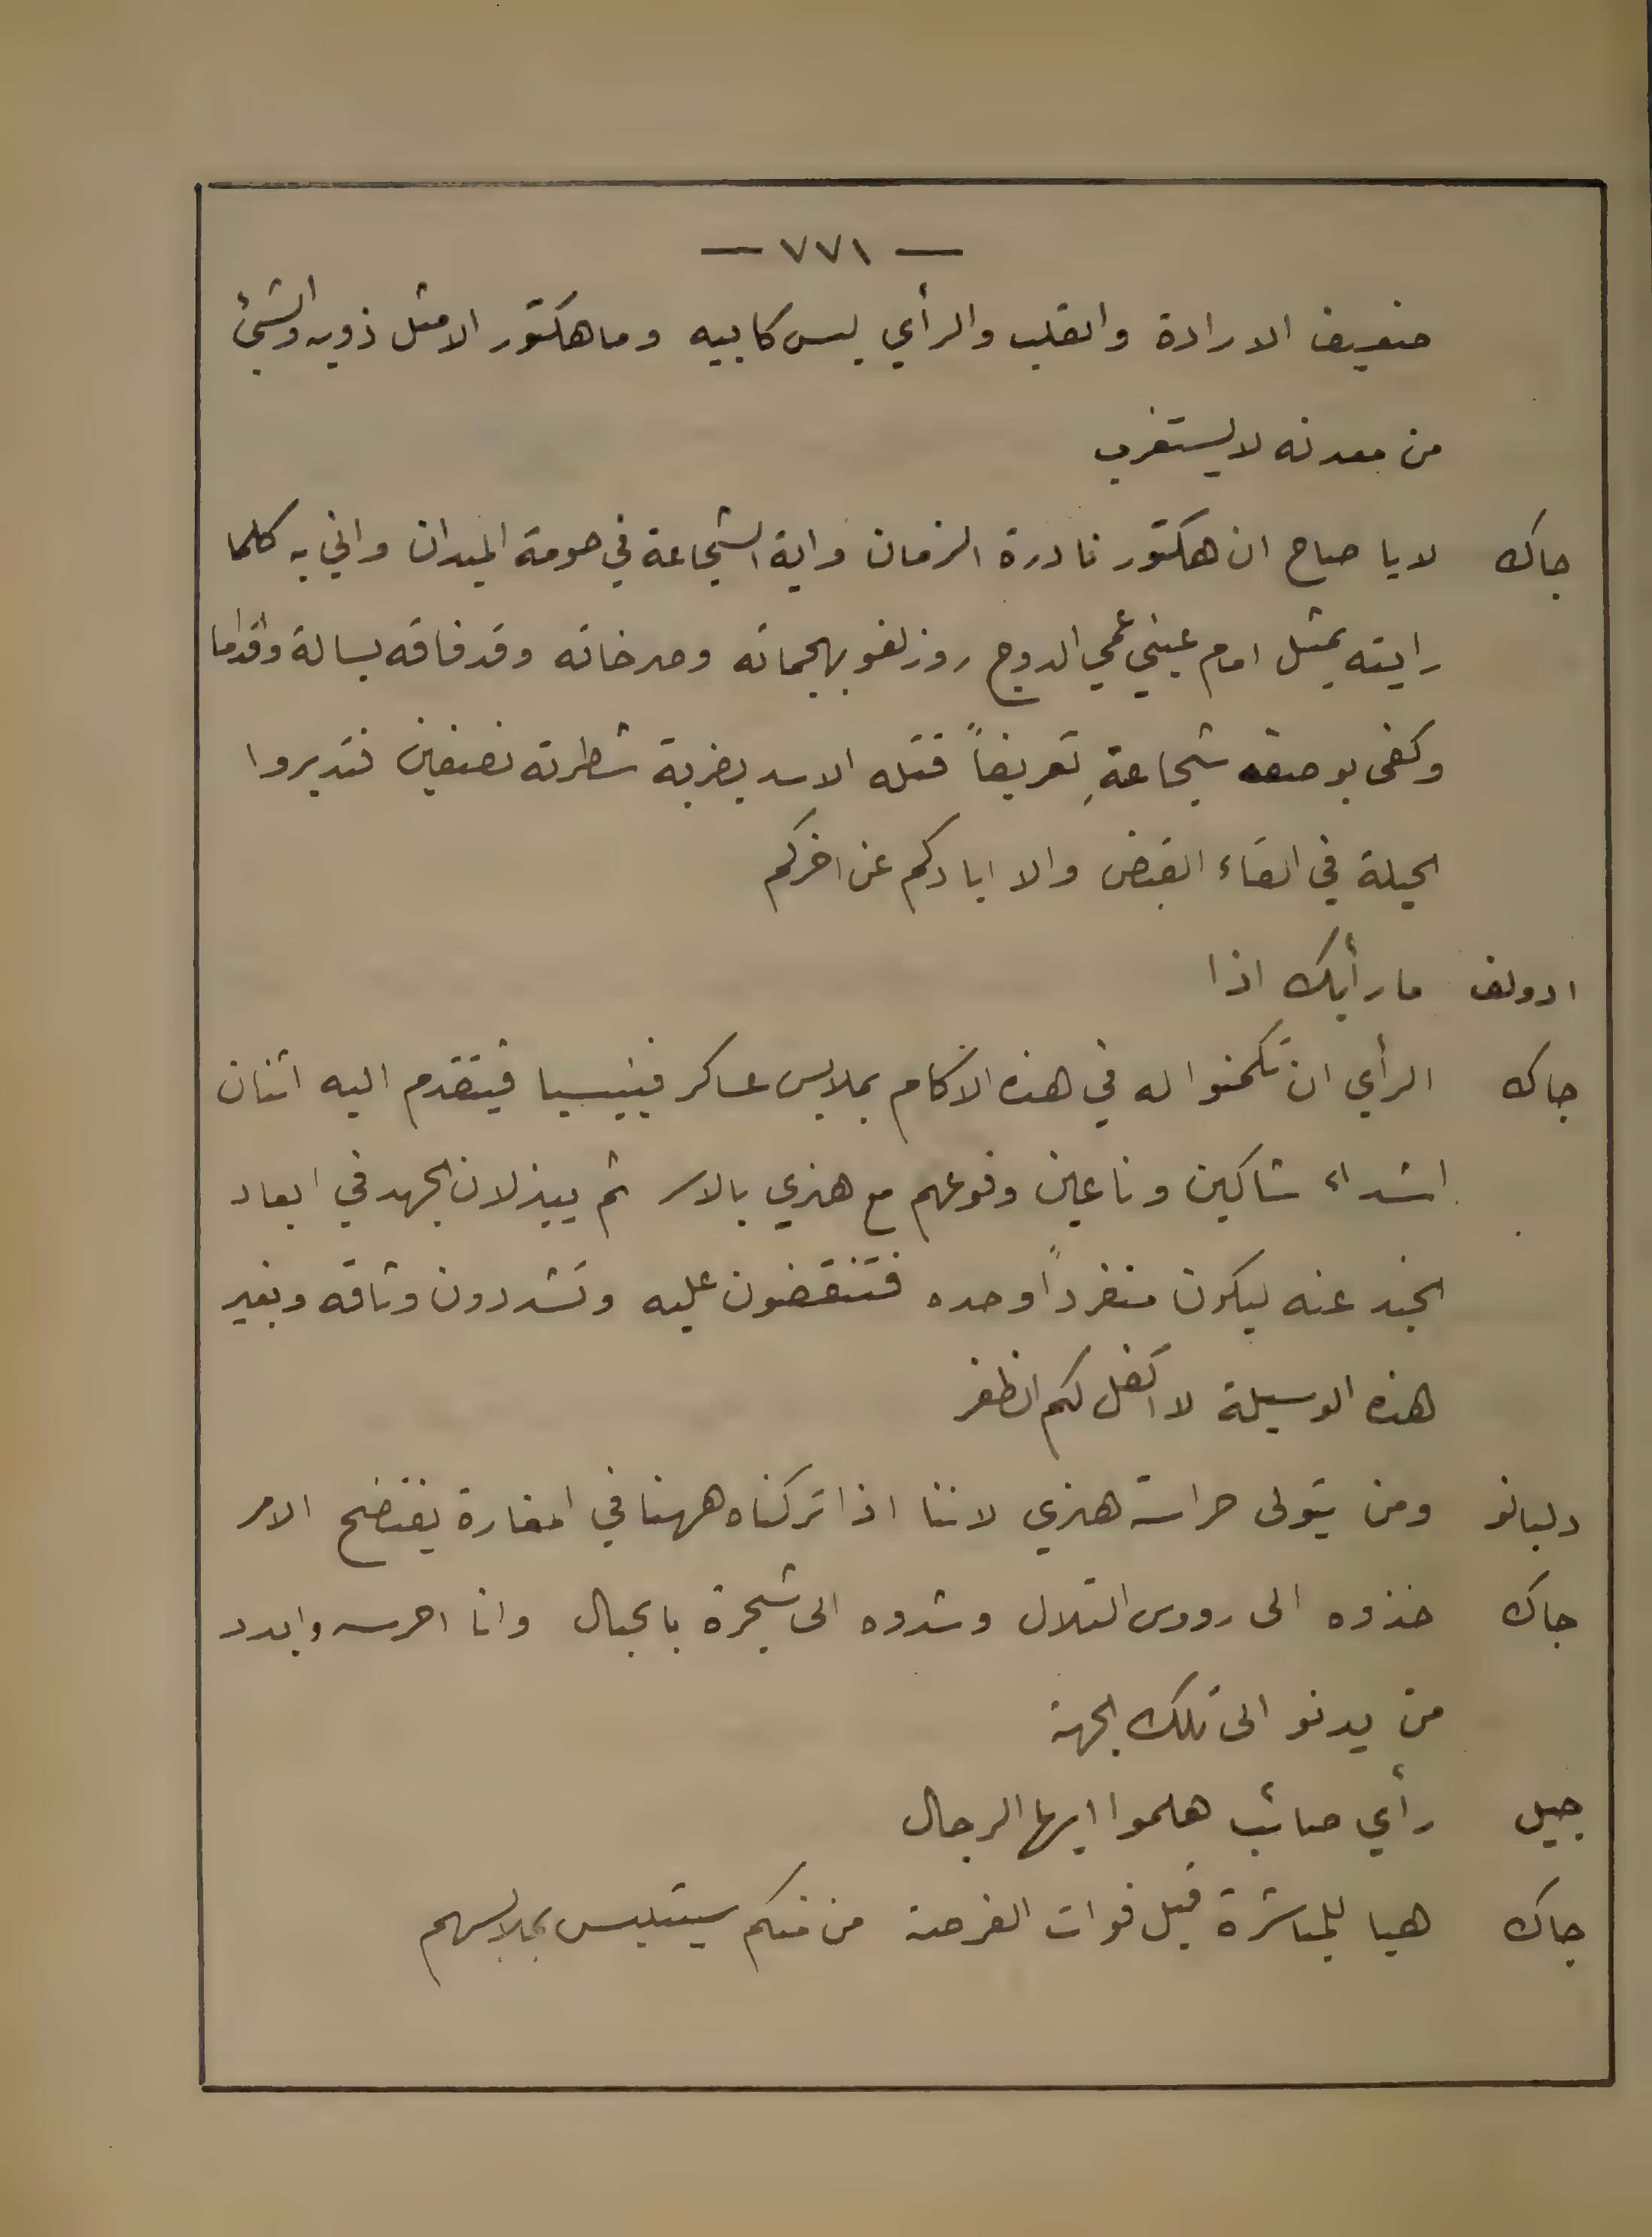 — ٧٧١ —
ضعيف الارادة والقلب والرأي ليس كابيه وما هكتور الا مثل ذويه والشيئ
من معدنه لا يستغرب
جاك لا يا صاح ان هكتور نادرة الزمان وآية الشجاعة في حومة الميدان واني به كلما
رايته يمثل امام عيني عمي الدوج روزلفو بهجماته وصرخاته وقد فاقه بسالة واقداما
وكفى بوصفه شجاعةِ تعريفاً قتله الاسد بضربة شطرته نصفين فتدبروا
الحيلة في القاء القبض والا ابادكم عن اخركم
ادولف ما رأيك اذا
جاك الرأي ان تكمنوا له في هذه الاكام بملابس عساكر فينيسيا فيتقدم اليه اثنان
اشداء شاكين وناعين وقوعهم مع هنري بالاسر ثم يبذلان الجهد في ابعاد
الجند عنه ليكون منفرداً وحده فتنقضون عليه وتشددون وثاقه وبغير
هذه الوسيلة لا اكفل لكم الظفر
دلبانو ومن يتولى حراسة هنري لاننا اذا تركناه ههنا في المغارة يفتضح الامر
جاك خذوه الى رووس التلال وشدوه الى شجرة بالحبال وانا احرسه وابدد
من يدنو الى تلك الجهة
جيل رأي صائب هلموا ايها الرجال
جاك هيا للمباشرة قبل فوات الفرصة من منكم سيتلبس بملابسهم